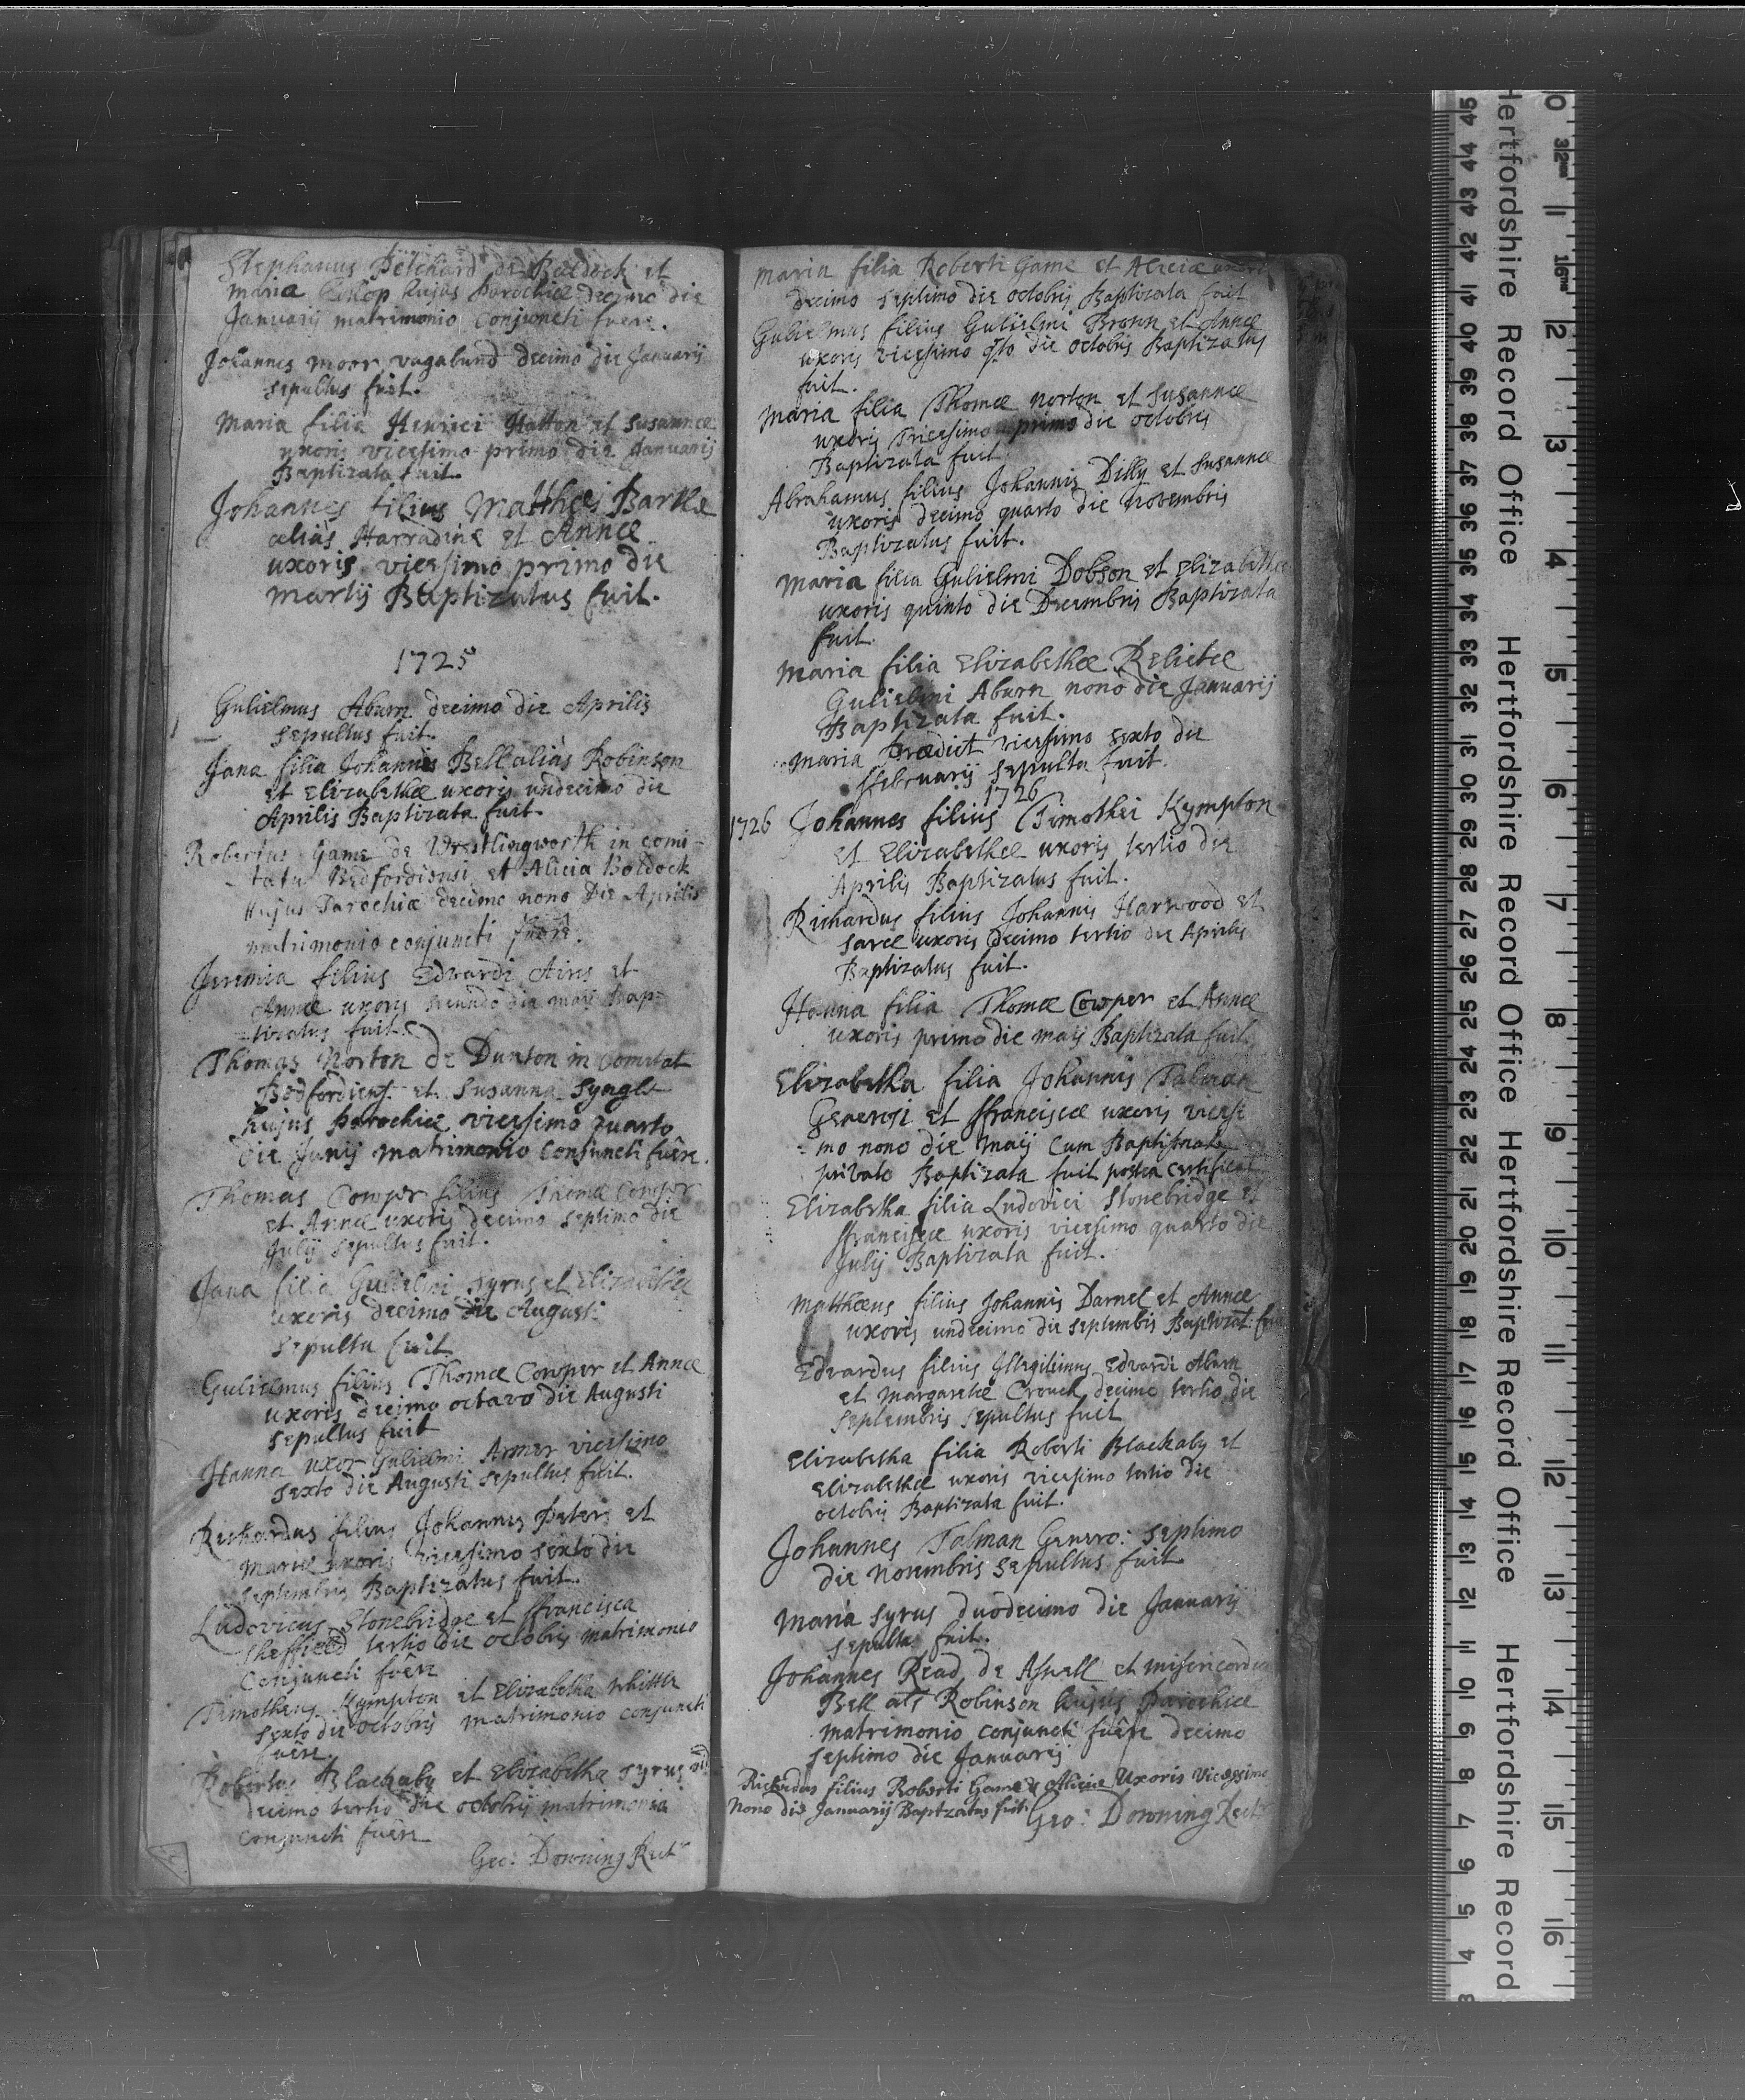 Stephanus Pëtchard de Baldock et
Maria hujus Parochiæ decimo die
Januarij matrimonio Conjuncti fuere.
Johannes Moor vagabund decimo die Januarij
Sepultus fuit.
Maria filia Henrici Hatton et Susannæ
uxoris vicessimo primo die Januarij
Baptizata fuit
Johannes filius Matthæi Barke
aliàs Harradine et Annæ
uxoris vicessimo primo die
Martij Baptizatus fuit.
1725
Gulielmus Aburn decimo die Aprilis
Sepultus fuit.
Jana filia Johannis Bell aliàs Robinson
et Elizabethæ uxoris undecimo die
Aprilis Baptizata fuit.
Robertus Game de Wrestlingworth in comi-
-tatu Bedfordiensi et Alicia Boldock
Hujus Parochiæ decimo nono Die Aprilis
matrimonio conjuncti fuere.
Jeremia filius Edvardi Airis et
Annæ uxoris secundo die maij Bap=
=tizatus fuit.
Thomas Norton de Dunton in Comitat
Bedfordiens: et Susanna Syngle
hujus Parochiæ vicessimo quarto
die Junij Matrimonio Conjuncti fuêre.
Thomas Cowper filius Thomæ Cowper
et Annæ uxoris decimo septimo die
Julij Sepultus fuit.
Jana filia Gulielmi Syrus et Elizabethæ
uxoris decimo die Augusti
Sepulta fuit
Gulielmus filius Thomæ Cowper et Annæ
uxoris decimo octavo die Augusti
Sepultus fuit
Hanna uxor Gulielmi Armer vicessimo
sexto die Augusti Sepultus fuit.
Richardus filius Johannis Peters et
Mariæ uxoris vicessimo sexto die
Septembris Baptizatus fuit.
Ludovicus Stonebridge et ffrancisca
Sheffield tertio die octobris matrimonio
Conjuncti fuêre
Timotheus Kympton et Elizabetha Whittle
sexto die octobris matrimonio conjuncti
fuêre.
Robertus Blackaby et Elizabetha Syrus
decimo tertio die octobris matrimonio
conjuncti fuêre
Geo: Downing Rectr
Maria filia Roberti Game et Aliciæ uxoris
decimo septimo die octobris Baptizata fuit
Gulielmus filius Gulielmi Brown et Annæ
uxoris vicessimo qto die octobris Baptizatus
fuit.
Maria filia Thomæ Norton et Susannæ
uxoris Tricessimo primo die octobris
Baptizata fuit
Abrahamus filius Johannis Dilly et Susannæ
uxoris decimo quarto die Novembris
Baptizatus fuit.
Maria filia Gulielmi Dobson et Elizabethæ
uxoris quinto die Decembris Baptizata
fuit.
Maria filia Elizabethæ Relictæ
Gulielmi Aburn nono die Januarij
Baptizata fuit.
Maria Prædict vicessimo sexto die
ffebruarij Sepulta fuit.
1726
1726 Johannes filius Timothei Kympton
et Elizabethæ uxoris tertio die
Aprilis Baptizatus fuit.
Richardus filius Johannis Harwood et
Saræ uxoris decimo tertio die Aprilis
Baptizatus fuit.
Hanna filia Thomæ Cowper et Annæ
uxoris primo die maij Baptizata fuit.
Elizabetha filia Johannis Talman
Generosi et ffranciscæ uxoris vicessi
=mo nono die Maij Cum Baptismate
privato Baptizata fuit postea Certificat
Elizabetha filia Ludovici Stonebridge et
ffranciscæ uxoris vicessimo quarto die
Julij Baptizata fuit.
Matthæus filius Johannis Darnel et Annæ
uxoris undecimo die Septembis Baptizat: fuit
Edvardus filius Illegitimus Edvardi Aburn
et Margaretæ Crouch decimo tertio die
Septembris Sepultus fuit
Elizabetha filia Roberti Blackaby et
Elizabethæ uxoris vicessimo tertio die
octobris Baptizata fuit.
Johannes Talman Genero: Septimo
die Novembris Sepultus fuit
Maria Syrus duodecimo die Januarij
Sepulta fuit.
Johannes Read de Aswell et Misericordia
Bell als Robinson hujus Parochiæ
matrimonio conjuncti fuêre decimo
septimo die Januarij
Richardus filius Roberti Game & Aliciæ Uxoris Vicessimo
Nono die Januarij Baptzatus fuit.
Geo: Downing Rectr
Hertfordshire Record Office Hertfordshire Record Office Hertfordshire Record Office Hertfordshire Record